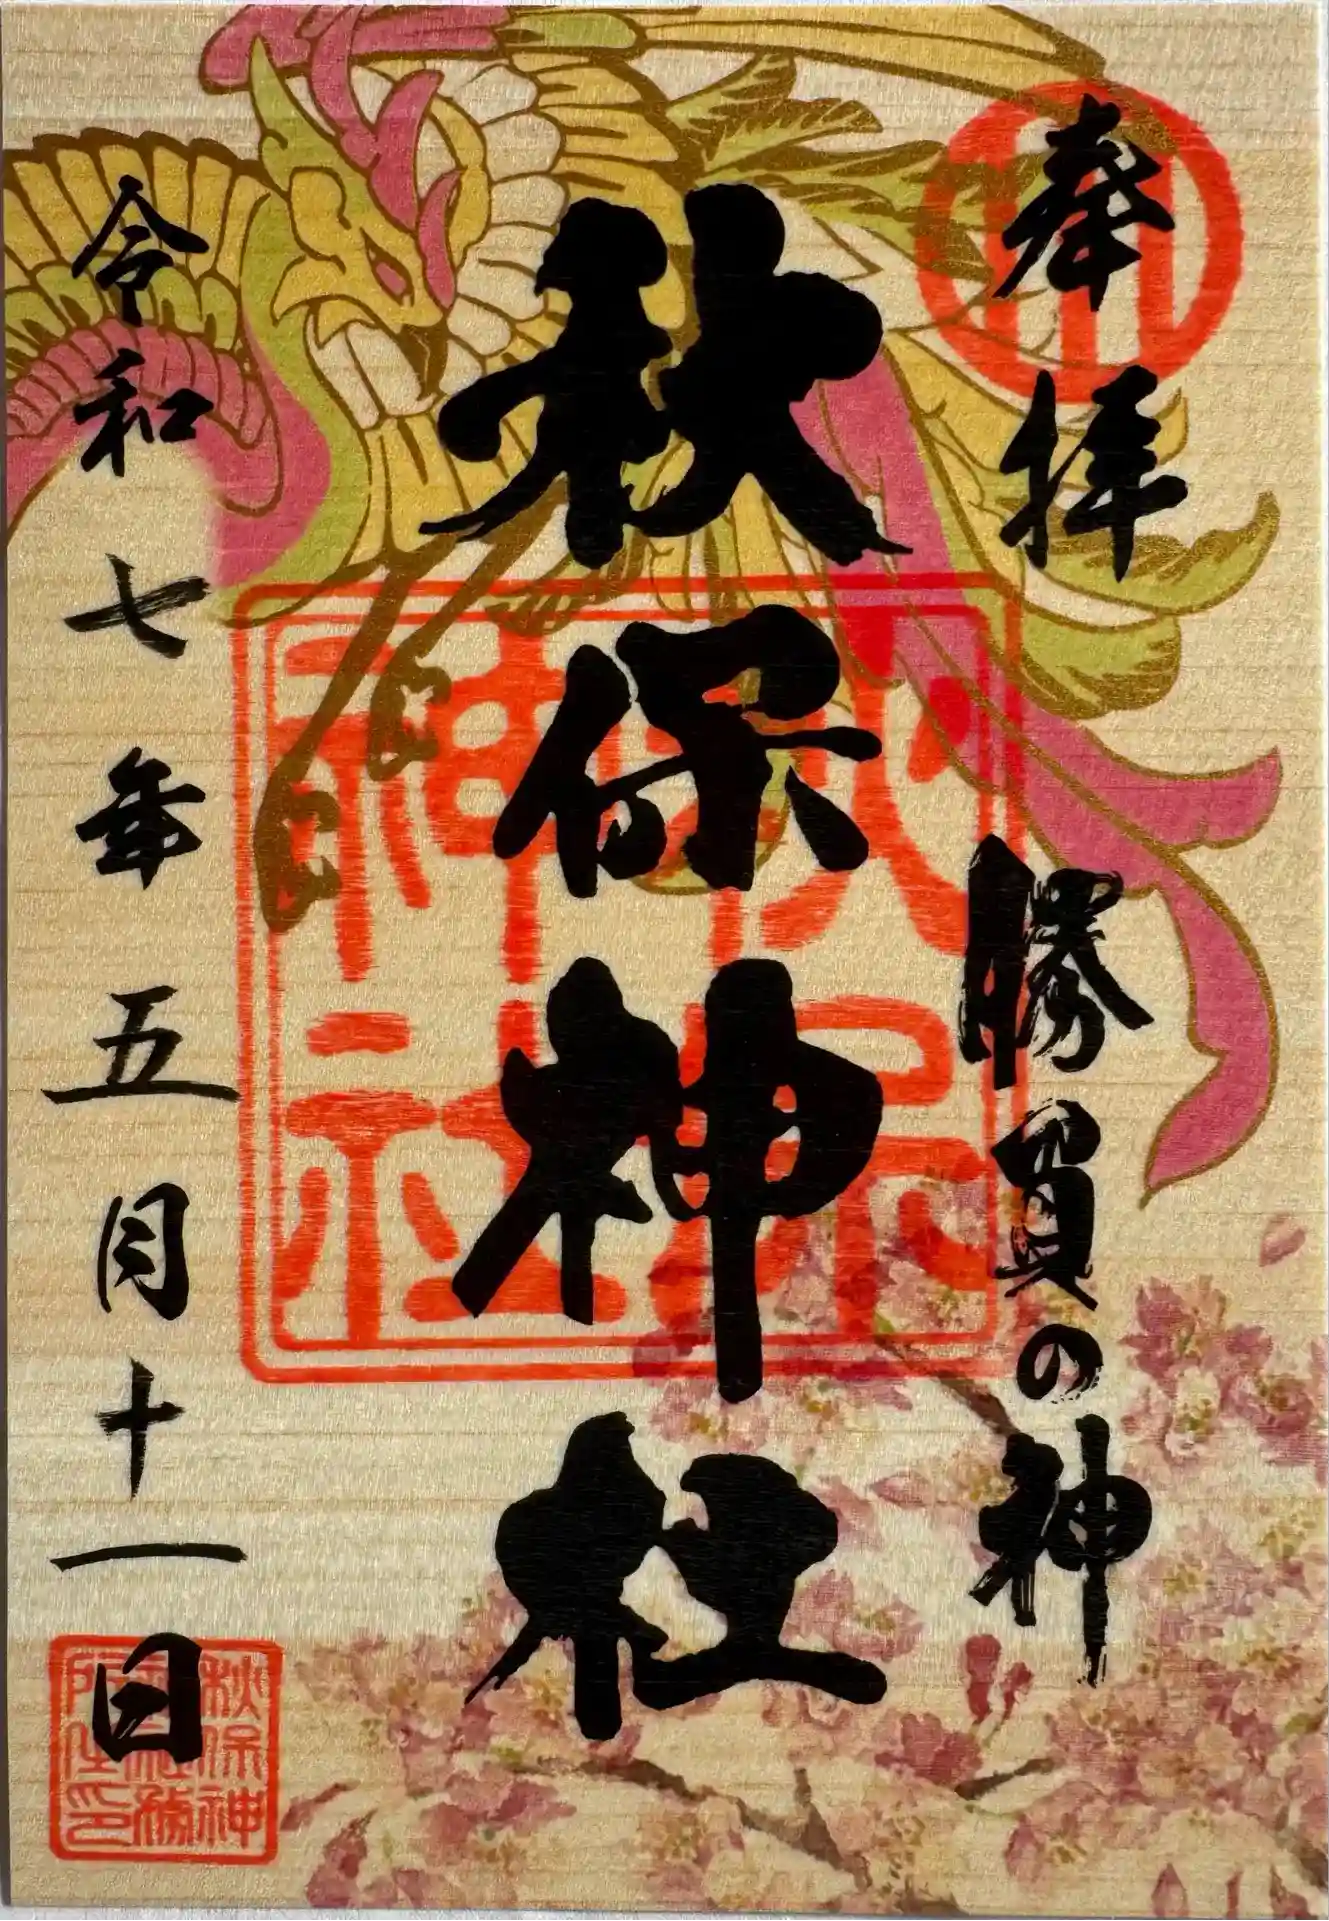 奉拝
勝負の神
秋保神社
秋保神社
令和七年五月十一日
秋保神
社務
所之印